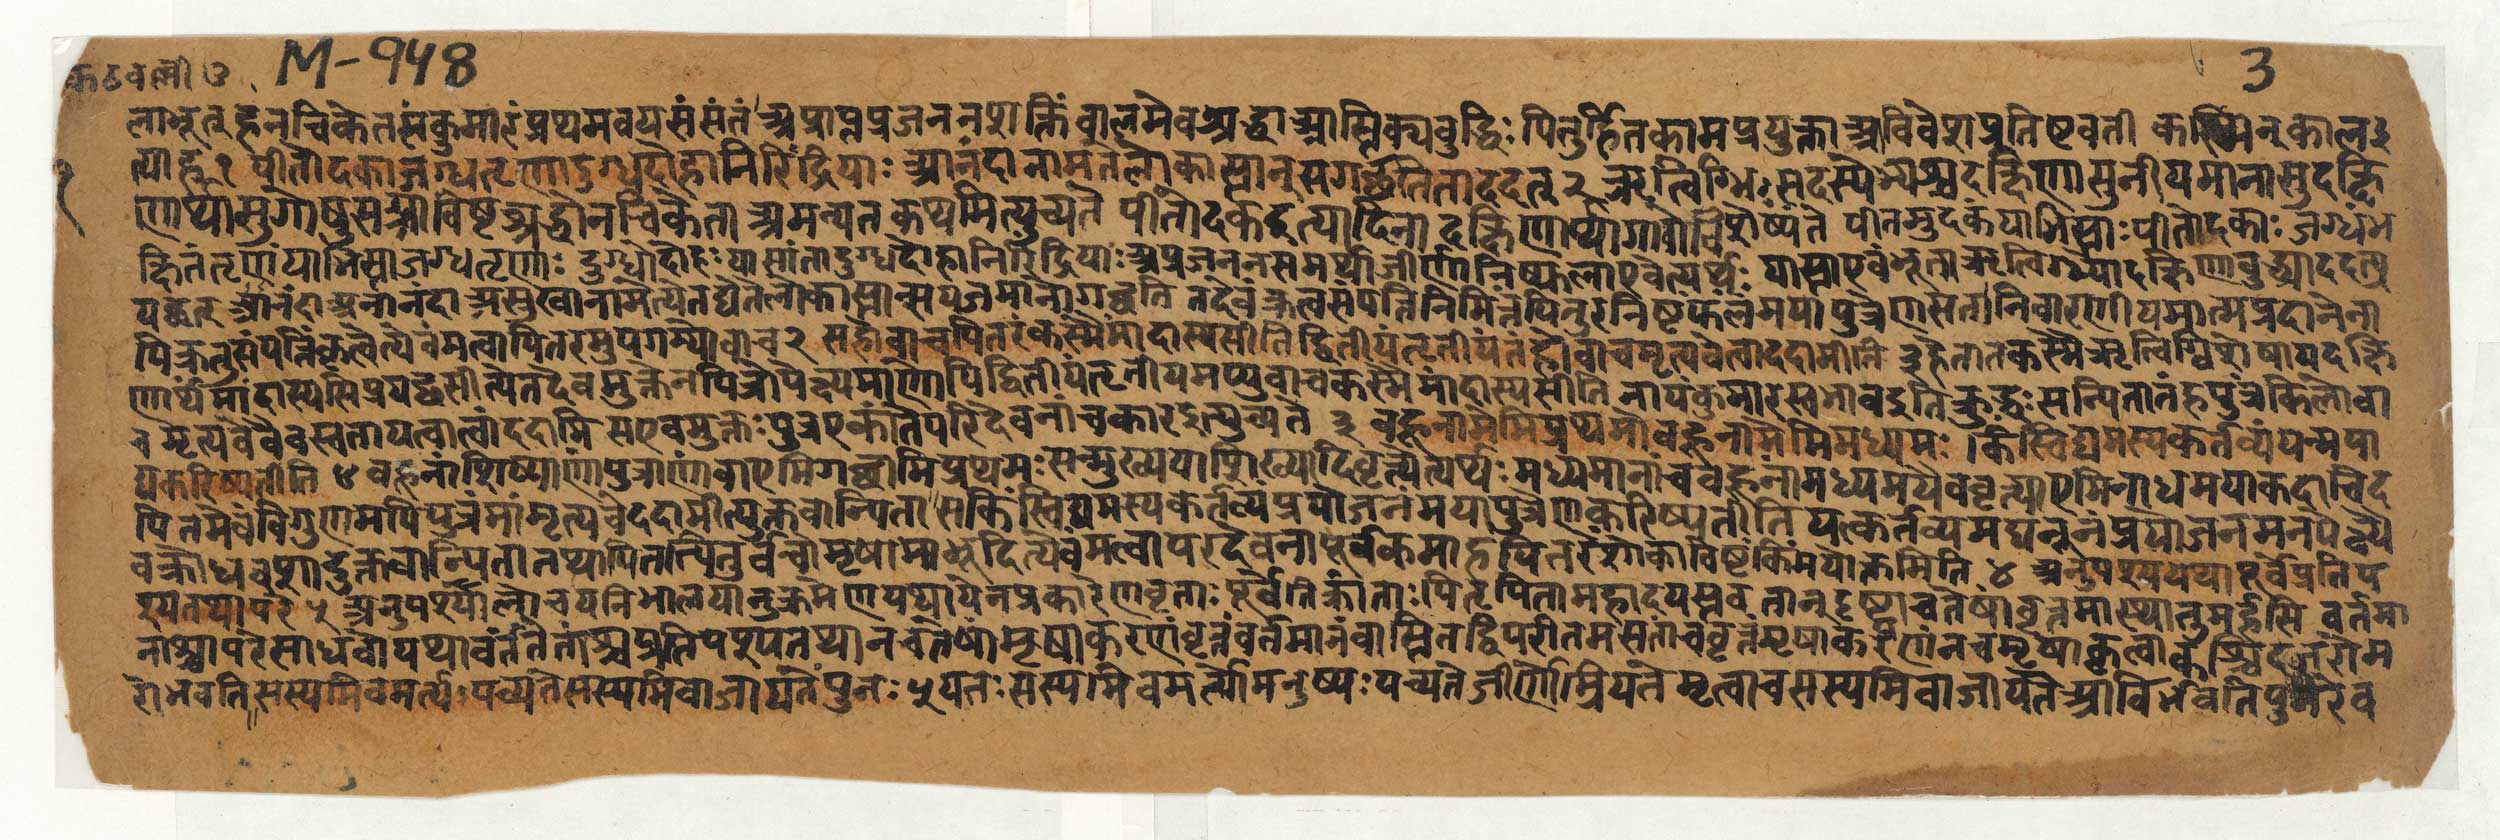 कठवल्ली ३
M-१५४
3
लाभूतहनचिकेतसंकुमारंप्रथमवयसंसंतं अप्राप्तप्रजननशक्तिंबालमेवश्रद्धाआस्तिक्यबुद्धिः पितुर्हितकामप्रयुक्ताआविवेशप्रविष्टवती कस्मिन्कालइ
त्याह १ पीतोदकाजग्धतृणादुग्धदोहानिरिंद्रियाः आनंदानामतेलोकास्तान्सगछतिताददत् २ ऋत्विग्भिःसदस्येभ्यश्चदक्षिणासुनीयमानासुदक्षि
णार्थासुगोषुसआविष्टश्रद्धोनचिकेता अमन्यत कथमित्युच्यते पीतोदकइत्यादिना दक्षिणार्थागावोविशेष्यंते पीतमुदकंयाभिस्ताःपीतोदकाः जग्धंभ
क्षितंतृणंयाभिस्ताजग्धतृणाः दुग्धोदोहःयासांतादुग्धदोहानिरिंद्रियाः अप्रजननसमर्थाजीर्णानिष्फलाएवेत्यर्थः यास्ताएवंभूताऋत्विग्भ्योदक्षिणाबुद्ध्याददत्प्र
यछन् आनंदाअनानंदा असुखानामेत्येतद्येतेलोकास्तान्सयजमानोगछति तदेवंक्रत्वसंपत्तिनिमित्तंपितुरनिष्टंफलंमयापुत्रेणसतानिवारणीयमात्मप्रदानेना
पिक्रतुसंपत्तिंकृत्वेत्येवंमत्वापितरमुपगम्योवाच २ सहोवाचपितरंकस्मैमांदास्यसीति द्वितीयंतृतीयंतंहोवाचमृत्यवेत्वाददामीति ३ हेतातकस्मैऋत्विग्विशेषायदक्षि
णार्थंमांदास्यसिप्रयछसीत्येतदेवमुक्तेनपित्रोपेक्ष्यमाणोपिद्वितीयंतृतीयमप्युवाचकस्मैमांदास्यसीति नायंकुमारस्वभावइति क्रुद्धःसन्पितातंहपुत्रंकिलोवा
चमृत्यवेवैवस्वतायत्वात्वांददामि सएवमुक्तःपुत्रएकांतेपरिदेवनांचकारइत्युच्यते ३ बहूनामेमिप्रथमोबहूनामेमिमध्यमः किंस्विद्यमस्यकर्तव्यंयन्मया
द्यकरिष्यतीति ४ बहूनांशिष्याणांपुत्राणांवाएमिगछामिप्रथमःसन्मुख्ययाशिष्यादिवृत्त्येत्यर्थः मध्यमानांचबहूनांमध्यमयैववृत्त्याएमिनाधमयाकदाचिद
पितमेवंविगुणमपिपुत्रंमांमृत्यवेददामीत्युक्तवान्पिता सकिंस्विद्यमस्यकर्तव्यंप्रयोजनंमयापुत्रेणकरिष्यतीति यत्कर्तव्यमद्यनूनंप्रयोजनमनपेक्ष्यै
वक्रोधवशादुक्तवान्पितातथापितत्पितुर्वचोमृषामाभूदित्येवंमत्वापरिदेवनापूर्वकमाहपितरंशोकाविष्टंकिंमयोक्तमिति ४ अनुपश्ययथापूर्वेप्रतिप
श्यतथापरे ५ अनुपश्यालोचयनिभालयानुक्रमेणयथायेनप्रकारेणवृत्ताः पूर्वेतिक्रांताः पितृपितामहादयस्तव तान्दृष्ट्वाचतेषांवृत्तमास्थातुमर्हसि वर्तमा
नाश्चापरेसाधवोयथावर्तंतेतांश्चप्रतिपश्यतथानचतेषांमृषाकरणंवृत्तंवर्तमानंवास्तितद्विपरीतमसतांचवृत्तंमृषाकरणंनचमृषाकृत्वाकश्चिदजरोम
रोभवति सस्यमिवमर्त्यःपच्यतेसस्यमिवाजायतेपुनः ५ यतःसस्यमिवमर्त्योमनुष्यःपच्यतेजीर्णोम्रियतेमृत्वाचसस्यमिवाजायतेआविर्भवतिपुनरेव